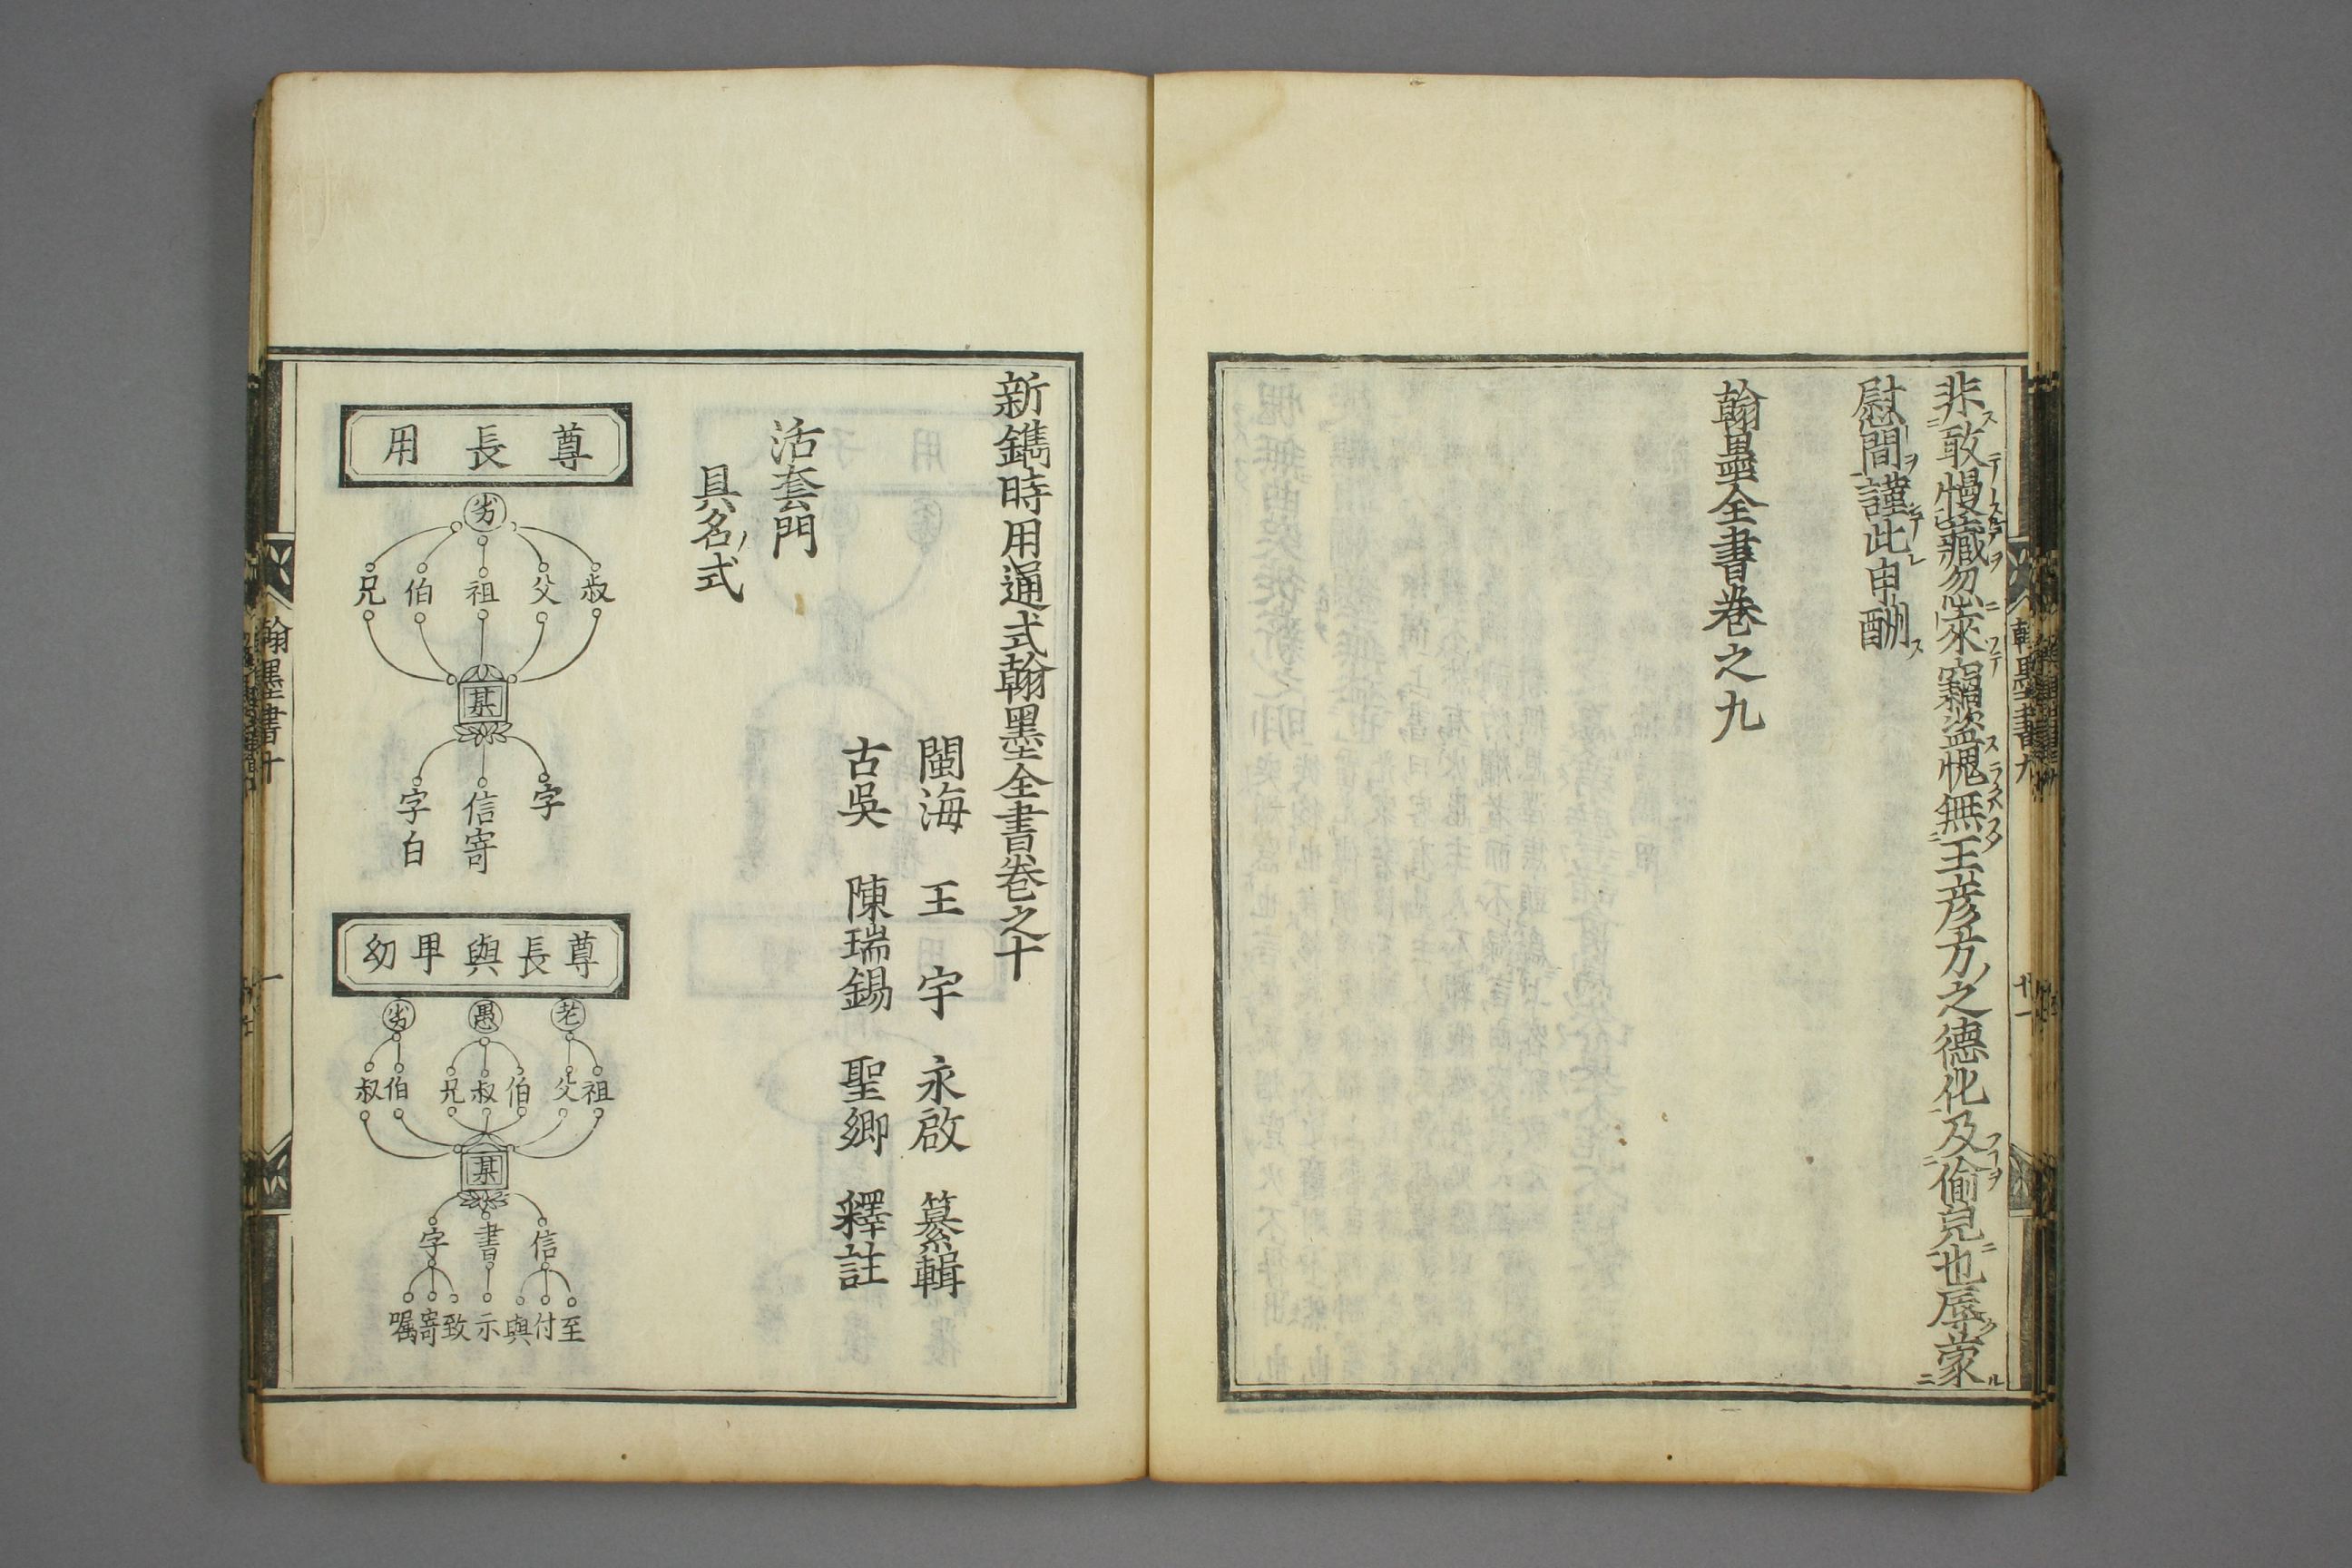 非敢慢藏忽來竊盜愧無王彦方之德化及偷兒也辱蒙
慰問謹此申酬
翰墨全書卷之九
新鐫時用通式翰墨全書卷之十
閩海 王 宇 永啟 纂輯
古吳 陳瑞錫 聖卿 釋註
活套門
具名ノ式
尊長用
劣
叔 父 祖 伯 兄
某
字 信寄 字白
尊長與甲幼
老 愚 劣
祖 父 伯 叔 兄 伯 叔
某
信 書 字
至 付 與 示 致 寄 囑
翰墨書十
一